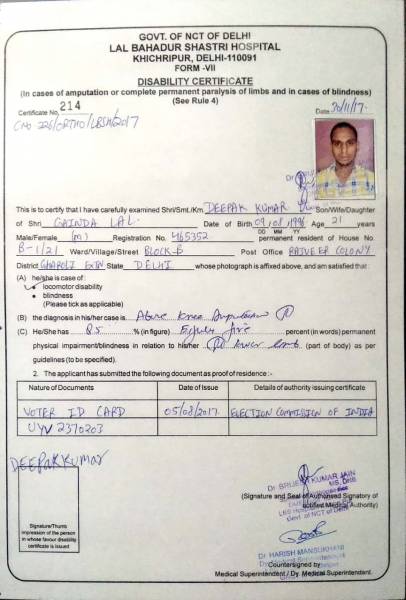 GOVT. OF NCT OF DELHI
LAL BAHADUR SHASTRI HOSPITAL
KHICHRIPUR, DELHI-110091
FORM -VII
DISABILITY CERTIFICATE
(In cases of amputation or complete permanent paralysis of limbs and in cases of blindness)
(See Rule 4)
Certificate No. 214 Date 30/11/17.
C No 226/ORTHO/LBSH/2017
This is to certify that I have carefully examined Shri/Smt./Km. DEEPAK KUMAR Son/Wife/Daughter
of Shri GAINDA LAL Date of Birth 09/08/1996 Age 21 years
DD MM YY
Male/Female (M) Registration No. 465352 permanent resident of House No.
B-1/21 Ward/Village/Street BLOCK-B Post Office RAJVEER COLONY
District GHAROLI EXTN State DELHI whose photograph is affixed above, and am satisfied that :
(A) he/she is case of :
• locomotor disability
• blindness
(Please tick as applicable)
(B) the diagnosis in his/her case is Above Knee Amputation (R)
(C) He/She has 85 % (in figure) Eighty five percent (in words) permanent
physical impairment/blindness in relation to his/her (R) lower limb (part of body) as per
guidelines (to be specified).
2. The applicant has submitted the following document as proof of residence :-
Nature of Documents Date of Issue Details of authority issuing certificate
VOTER ID CARD 05/08/2017 ELECTION COMMISSION OF INDIA
UYV 2370203
DEEPAK KUMAR
Dr BRIJESH KUMAR JAIN
MS, DNB
(Signature and Seal of Authorised Signatory of
notified Medical Authority)
Govt. of NCT of Delhi
Signature/Thumb
impression of the person
in whose favour disability
certificate is issued
Dr HARISH MANSUKHANI
Countersigned by
Medical Superintendent / Dy. Medical Superintendent.